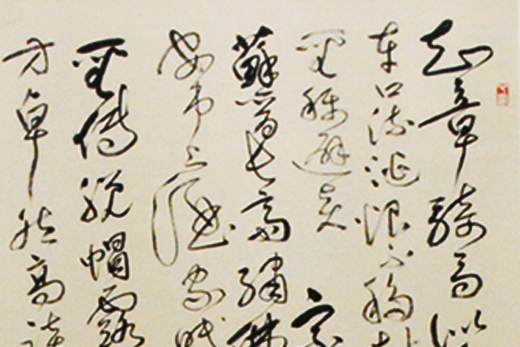 知章騎馬似
車口流涎恨不移封
聖稱避賢宗
蘇晉長齋繡佛
安市上酒家眠
聖傳脫帽露
方卓然高談